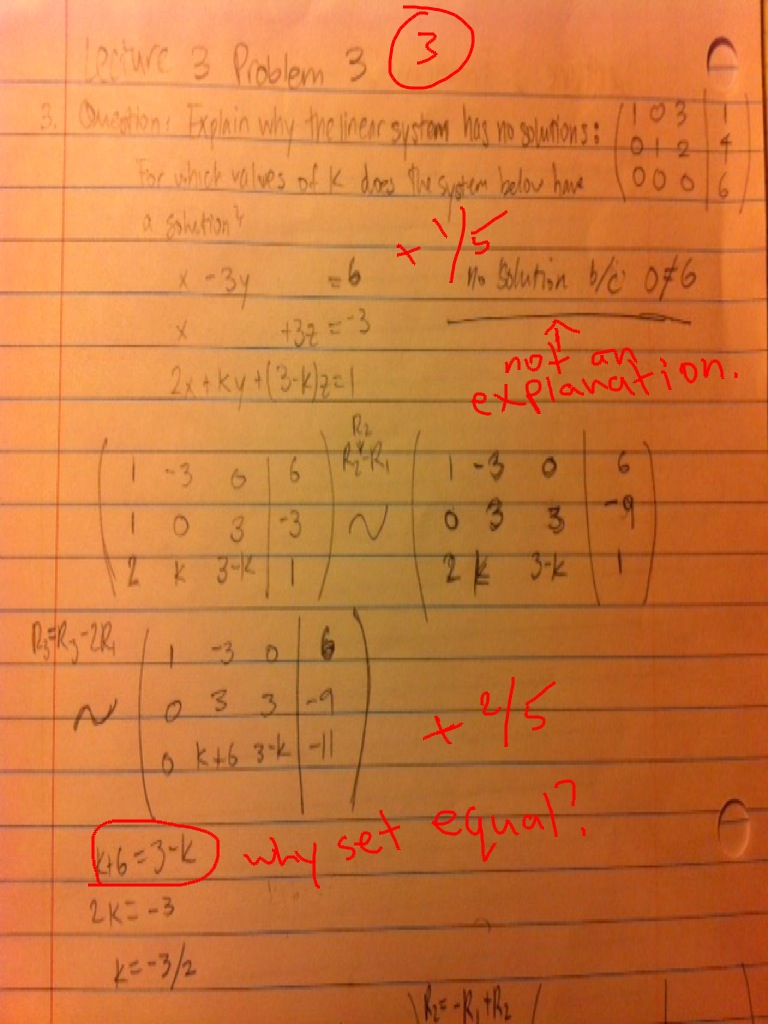 Lecture 3 Problem 3 3
3. Question: Explain why the linear system has no solutions: (1 0 3 | 1
0 1 2 | 4
For which values of k does the system below have 0 0 0 | 6)
a solution?
+ 1/5
x - 3y = 6 no solution b/c 0≠6
x + 3z = -3
not an
explanation.
2x + ky + (3-k)z = 1
R2
R2-R1
(1 -3 0 | 6 (1 -3 0 | 6
1 0 3 | -3 ~ 0 3 3 | -9
2 k 3-k | 1) 2 k 3-k | 1)
R3=R3-2R1 (1 -3 0 | 6
~ 0 3 3 | -9
0 k+6 3-k | -11)
+ 2/5
k+6=3-k why set equal?
2k=-3
k=-3/2
R2=-R1+R2